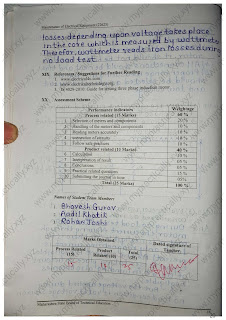 Maintenance of Electrical Equipment (22625)
losses depending upon voltage takes place
in the core which is measured by wattmeter.
Therefor, wattmeter reads iron losses during
no load test.
XIX. References / Suggestions for Further Reading
XX. Assessment Scheme
Performance indicators Weightage
Process related (15 Marks) 60 %
1 Selection of meters and components
2 Handling of the meters and components
3 Reading meters accurately
4
5 Follow safe practices
Product related (10 Marks) 40 %
6 Calculation
7 Interpretation of result
8 Conclusions
9 Practical related questions
10 Submitting the journal in time
Total (25 Marks) 100 %
Names of Student Team Members
1. Bhavesh Gurav
2. Aadil Khatik
3. Rohan Joshi
Marks Obtained Dated signature of Teacher
Process Related (15) Product Related (10) Total (25)
Maharashtra State Board of Technical Education